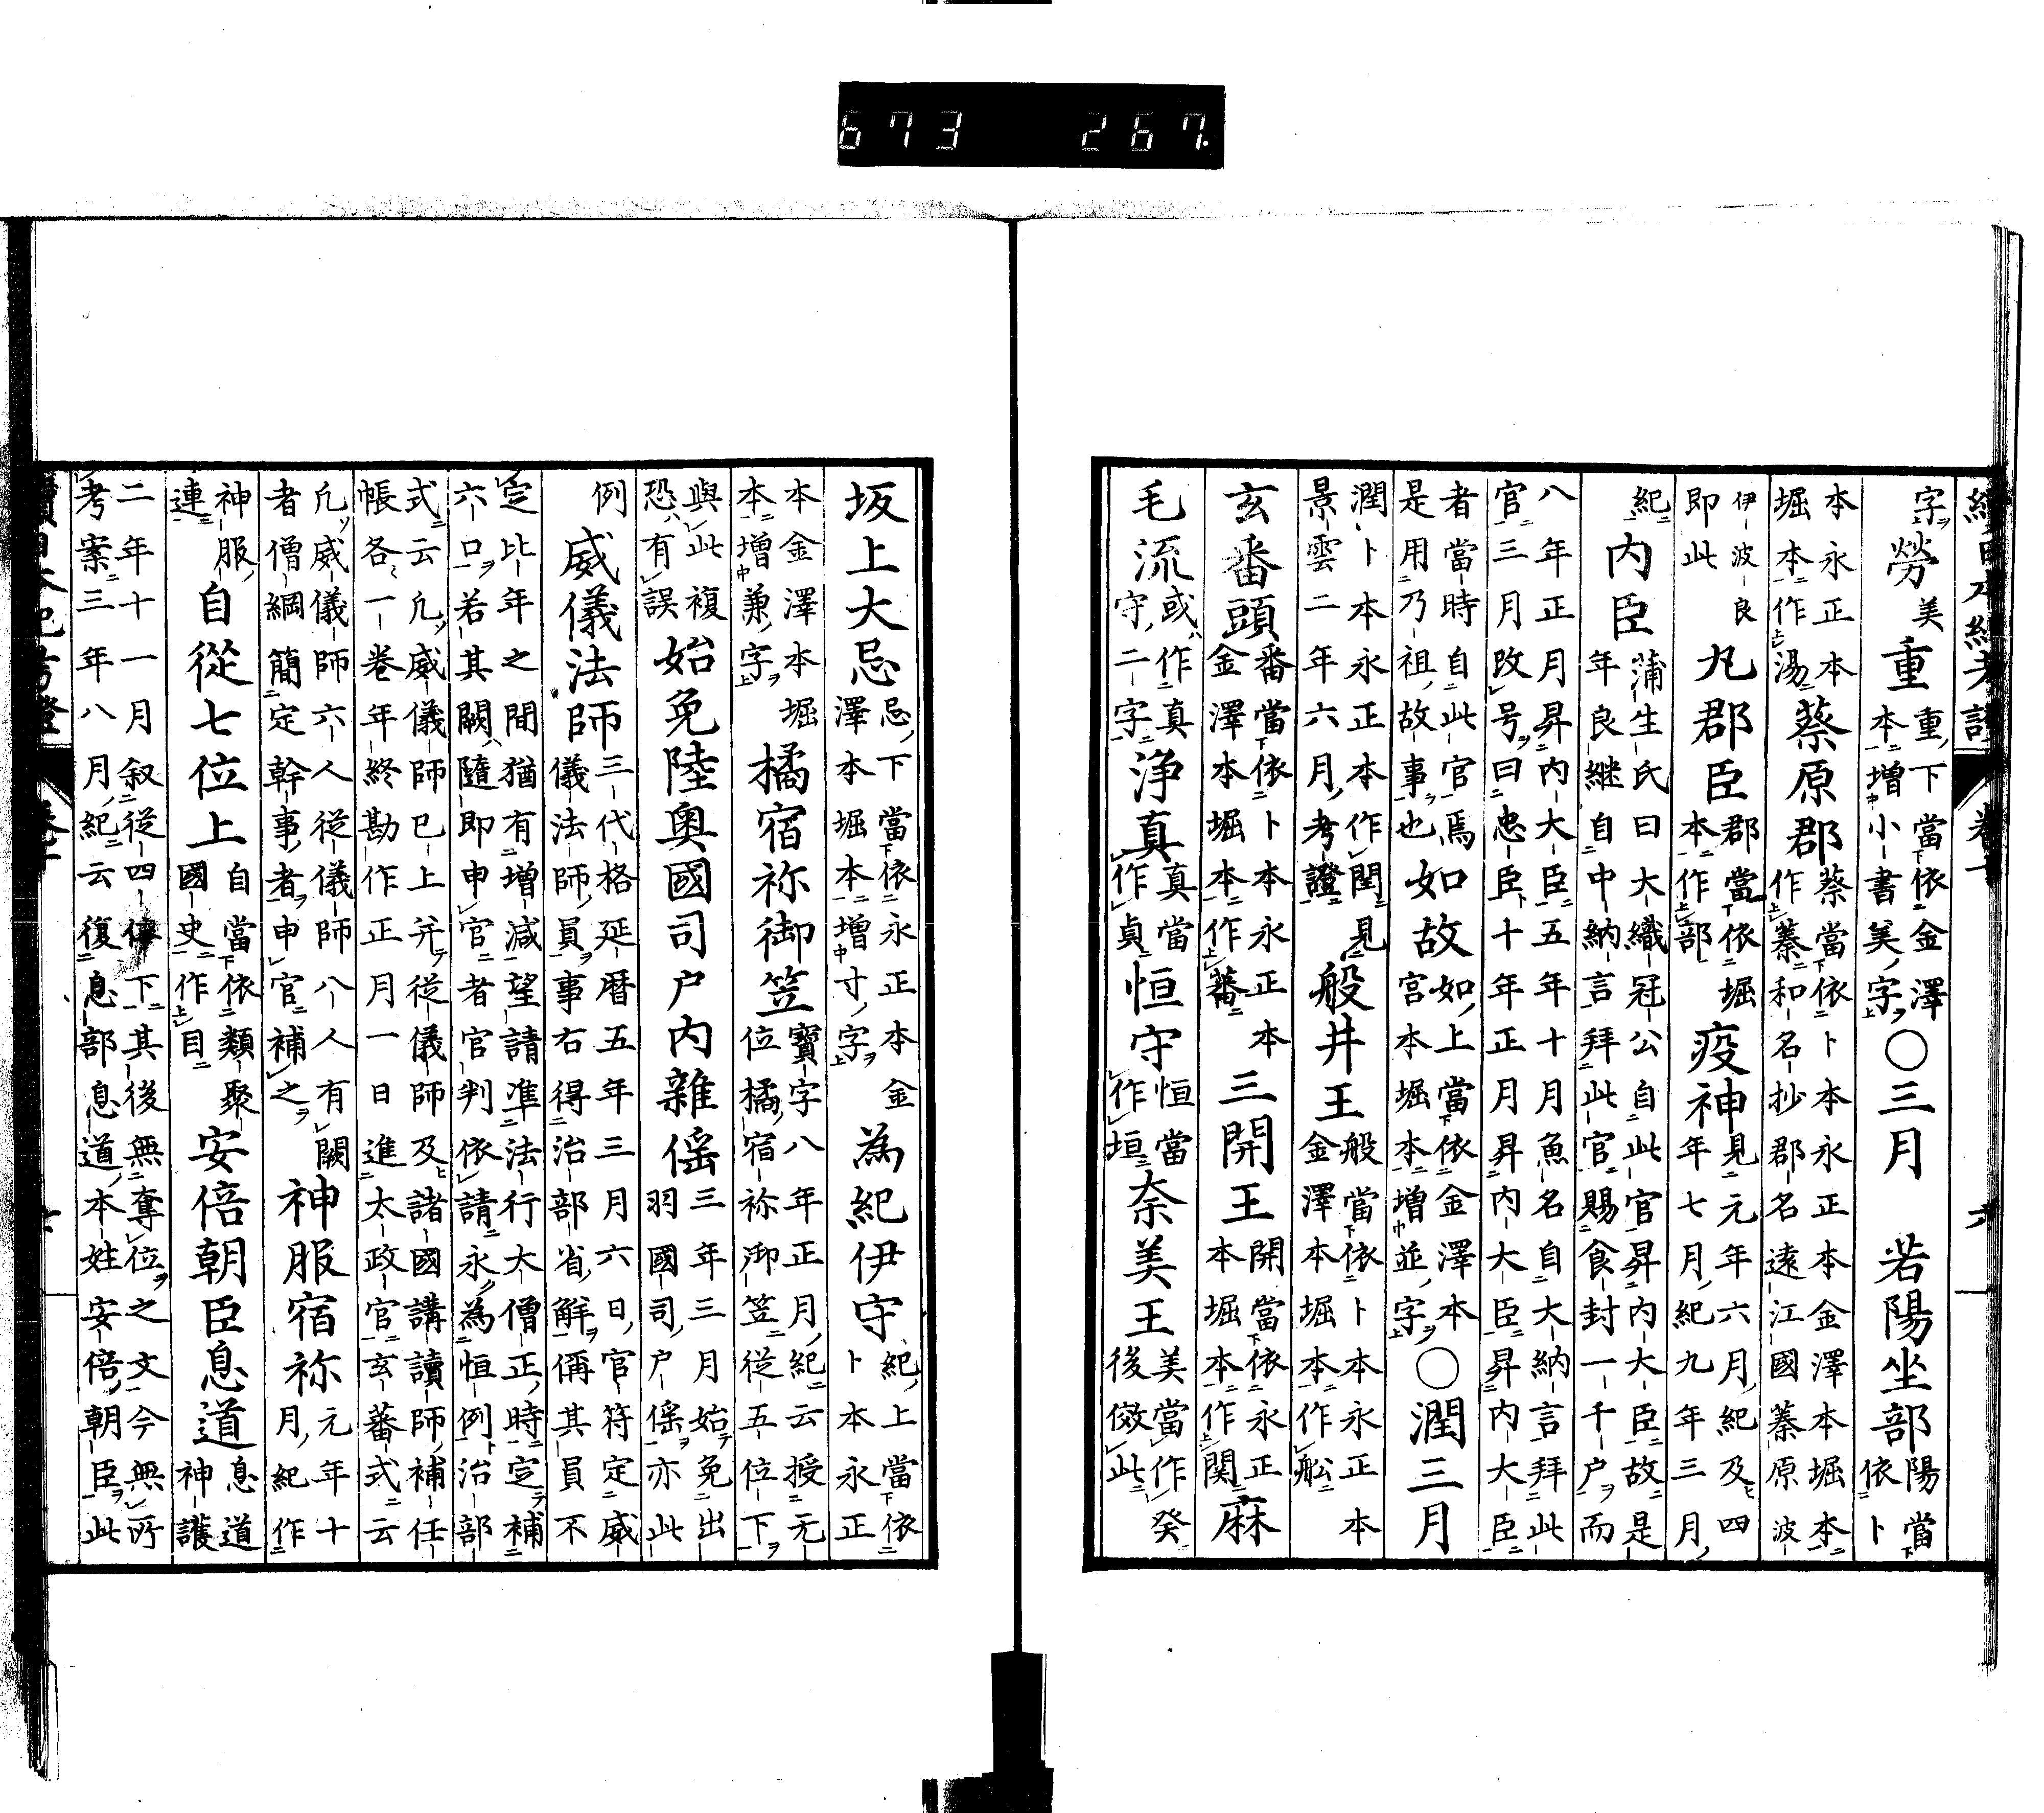 673 267.
字勞美重重下當依金澤本增小書美字〇三月 若陽坐部陽當依卜
本永正本堀本作湯蔡原郡蔡當依卜本永正本金澤本堀本作蓁和名抄郡名遠江國蓁原波
伊波良即此 丸郡臣郡當依堀本作部 疫神見元年六月紀及四年七月紀九年三月
紀 內臣蒲生氏曰大織冠公自此官昇內大臣故是年良継自中納言拜此官賜食封一千户而
八年正月昇內大臣五年十月魚名自大納言拜此官三月改号曰忠臣十年正月昇內大臣昇內大臣
者當時自此官焉是用乃祖故事也如故如上當依金澤本宮本堀本增並字〇潤三月
潤卜本永正本作閏見景雲二年六月考證 般井王般當依卜本永正本金澤本堀本作舩
玄番頭番當依卜本永正本金澤本堀本作蕃 三開王開當依永正本堀本作関麻
毛流或作真守二字淨真真當作貞恒守恒當作垣奈美王美當作癸後傚此
坂上大忌忌下當依永正本金澤本堀本增寸字 為紀伊守紀上當依卜本永正
本金澤本堀本增兼字 橘宿祢御笠寶字八年正月紀云授无位橘宿祢御笠從五位下
與此複恐有誤始免陸奧國司户內雜徭三年三月始免出羽國司户徭亦此
例 威儀法師三代格延曆五年三月六日官符定威儀法師員事右得治部省解偁其員不
定比年之間猶有增減望請準法行大僧正時定補六口若其闕隨即申官者官判依請永為恒例治部
式云凢威儀師巳上幷從儀師及諸國講讀師補任帳各一卷年終勘作正月一日進太政官玄蕃式云
凢威儀師六人從儀師八人有闕者僧綱簡定幹事者申官補之 神服宿祢元年十月紀作
神服連 自從七位上自當依類聚國史作目 安倍朝臣息道息道神護
二年十一月叙從四位下其後無奪位之文今無所考案三年八月紀云復息部息道本姓安倍朝臣此